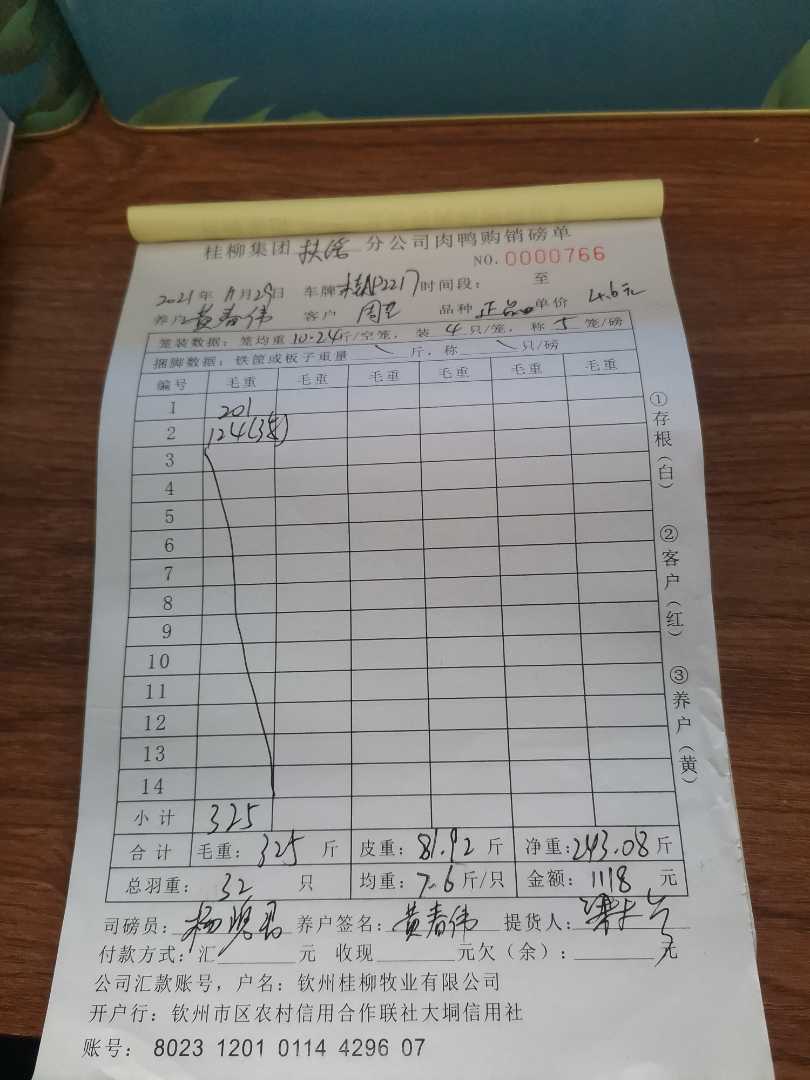 桂柳集团 扶绥 分公司肉鸭购销磅单
NO.0000766
2021年11月29日 车牌桂AP2217时间段： 至
养户黄春伟 客户 周 品种正品 单价 4.6元
笼装数据：笼均重10.24斤/空笼，装 4 只/笼，称 5 笼/磅
捆脚数据：铁筐或板子重量 \ 斤，称 \ 只/磅
编号 毛重 毛重 毛重 毛重 毛重 毛重
1 201
2 124(3笼)
3
4
5
6
7
8
9
10
11
12
13
14
小计 325
合计 毛重：325斤 皮重：81.92斤 净重：243.08斤
总羽重：32 只 均重：7.6斤/只 金额：1118元
司磅员：杨 养户签名：黄春伟 提货人：
付款方式：汇 元 收现 元欠（余）： 元
公司汇款账号，户名：钦州桂柳牧业有限公司
开户行：钦州市区农村信用合作联社大垌信用社
账号：8023 1201 0114 4296 07
①存根（白） ②客户（红） ③养户（黄）